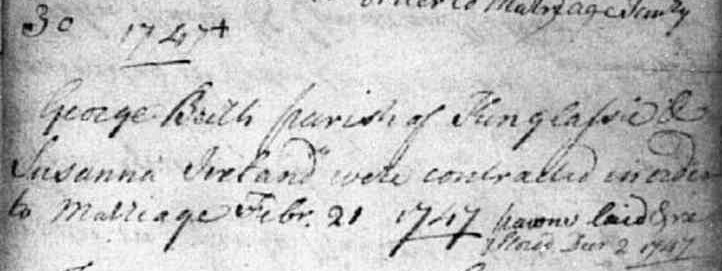 order to Marriage
30 1747+
George Beith parish of Kinglassie &
Susanna Ireland were contracted in order
to Marriage Febr. 21 1747 pawns laid &
2 1747